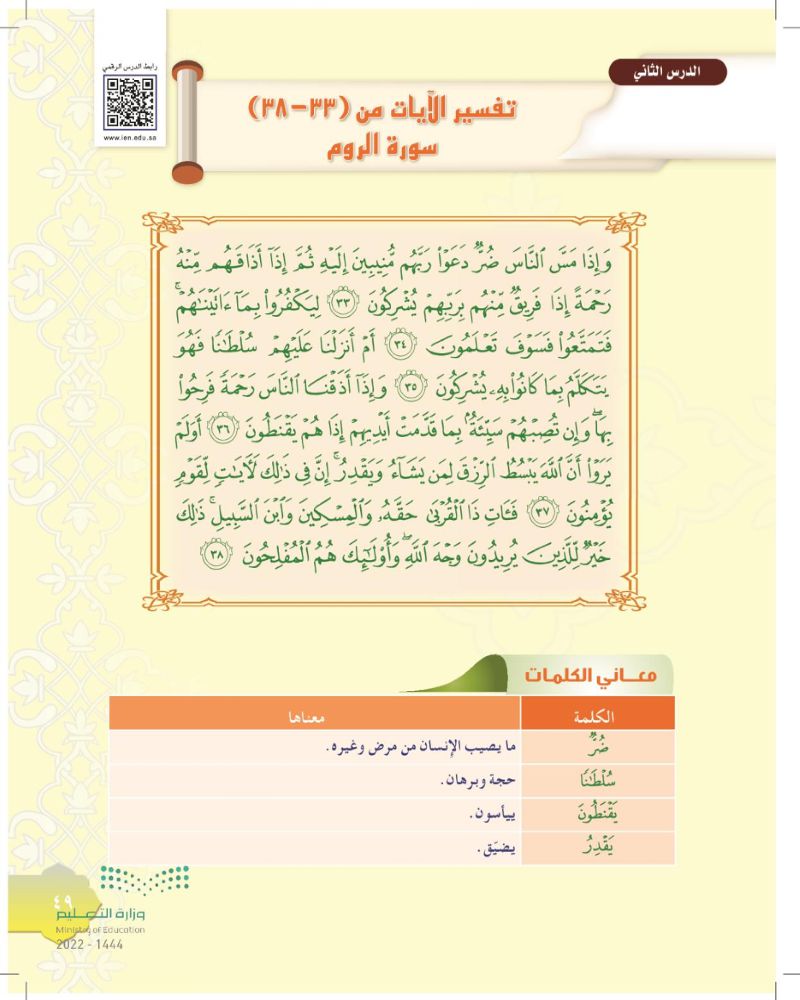 رابط الدرس الرقمي
www.ien.edu.sa
الدرس الثاني
تفسير الآيات من (٣٣-٣٨)
سورة الروم
وَإِذَا مَسَّ ٱلنَّاسَ ضُرٌّ دَعَوْا۟ رَبَّهُم مُّنِيبِينَ إِلَيْهِ ثُمَّ إِذَآ أَذَاقَهُم مِّنْهُ
رَحْمَةً إِذَا فَرِيقٌ مِّنْهُم بِرَبِّهِمْ يُشْرِكُونَ ٣٣ لِيَكْفُرُوا۟ بِمَآ ءَاتَيْنَٰهُمْ ۚ
فَتَمَتَّعُوا۟ فَسَوْفَ تَعْلَمُونَ ٣٤ أَمْ أَنزَلْنَا عَلَيْهِمْ سُلْطَٰنًا فَهُوَ
يَتَكَلَّمُ بِمَا كَانُوا۟ بِهِۦ يُشْرِكُونَ ٣٥ وَإِذَآ أَذَقْنَا ٱلنَّاسَ رَحْمَةً فَرِحُوا۟
بِهَا ۖ وَإِن تُصِبْهُمْ سَيِّئَةٌۢ بِمَا قَدَّمَتْ أَيْدِيهِمْ إِذَا هُمْ يَقْنَطُونَ ٣٦ أَوَلَمْ
يَرَوْا۟ أَنَّ ٱللَّهَ يَبْسُطُ ٱلرِّزْقَ لِمَن يَشَآءُ وَيَقْدِرُ ۚ إِنَّ فِى ذَٰلِكَ لَءَايَٰتٍ لِّقَوْمٍ
يُؤْمِنُونَ ٣٧ فَـَٔاتِ ذَا ٱلْقُرْبَىٰ حَقَّهُۥ وَٱلْمِسْكِينَ وَٱبْنَ ٱلسَّبِيلِ ۚ ذَٰلِكَ
خَيْرٌ لِّلَّذِينَ يُرِيدُونَ وَجْهَ ٱللَّهِ ۖ وَأُو۟لَٰٓئِكَ هُمُ ٱلْمُفْلِحُونَ ٣٨
معاني الكلمات
الكلمة معناها
ضُرٌّ ما يصيب الإنسان من مرض وغيره.
سُلْطَٰنًا حجة وبرهان.
يَقْنَطُونَ ييأسون.
يَقْدِرُ يضيّق.
٤٩
وزارة التعليم
Ministry of Education
2022 - 1444